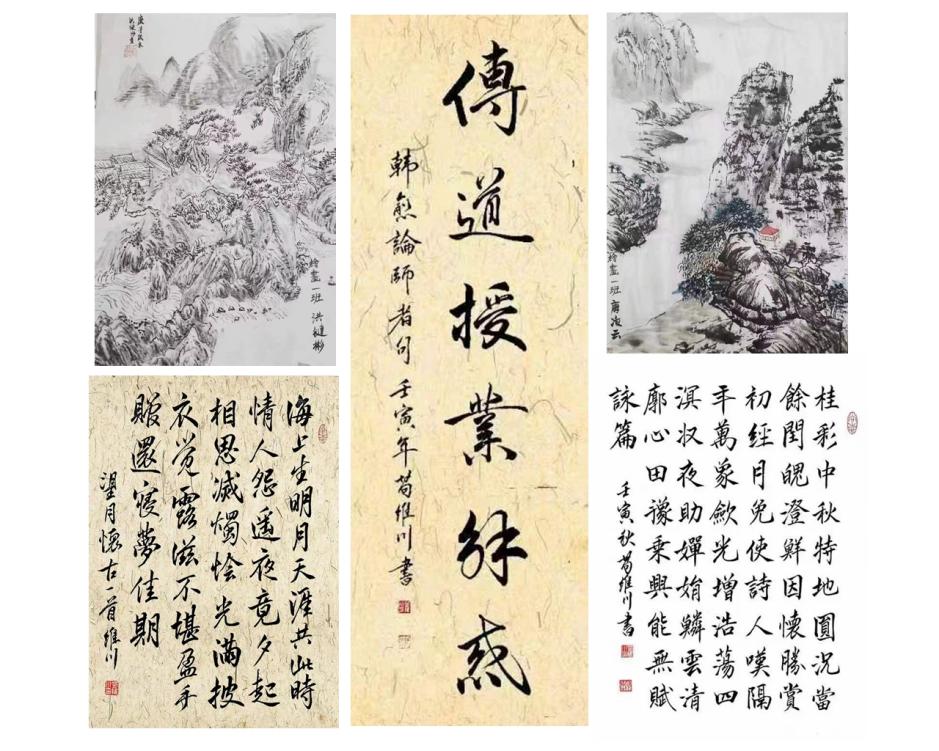 繪畫一班 洪
傳道授業解惑
韓愈論師者句 壬寅年荀維川書
繪畫一班
海上生明月天涯共此時
情人怨遥夜竟夕起
相思滅燭怜光滿披
衣覺露滋不堪盈手
贈還寢夢佳期
望月懷古一首維川
桂彩中秋特地圓況當
餘閏魄澄鮮因懷勝賞
初經月免使詩人嘆隔
年萬象歛光增浩蕩四
溟収夜助嬋娟鱗雲清
廓心田豫乗興能無賦
詠篇
壬寅秋荀維川書